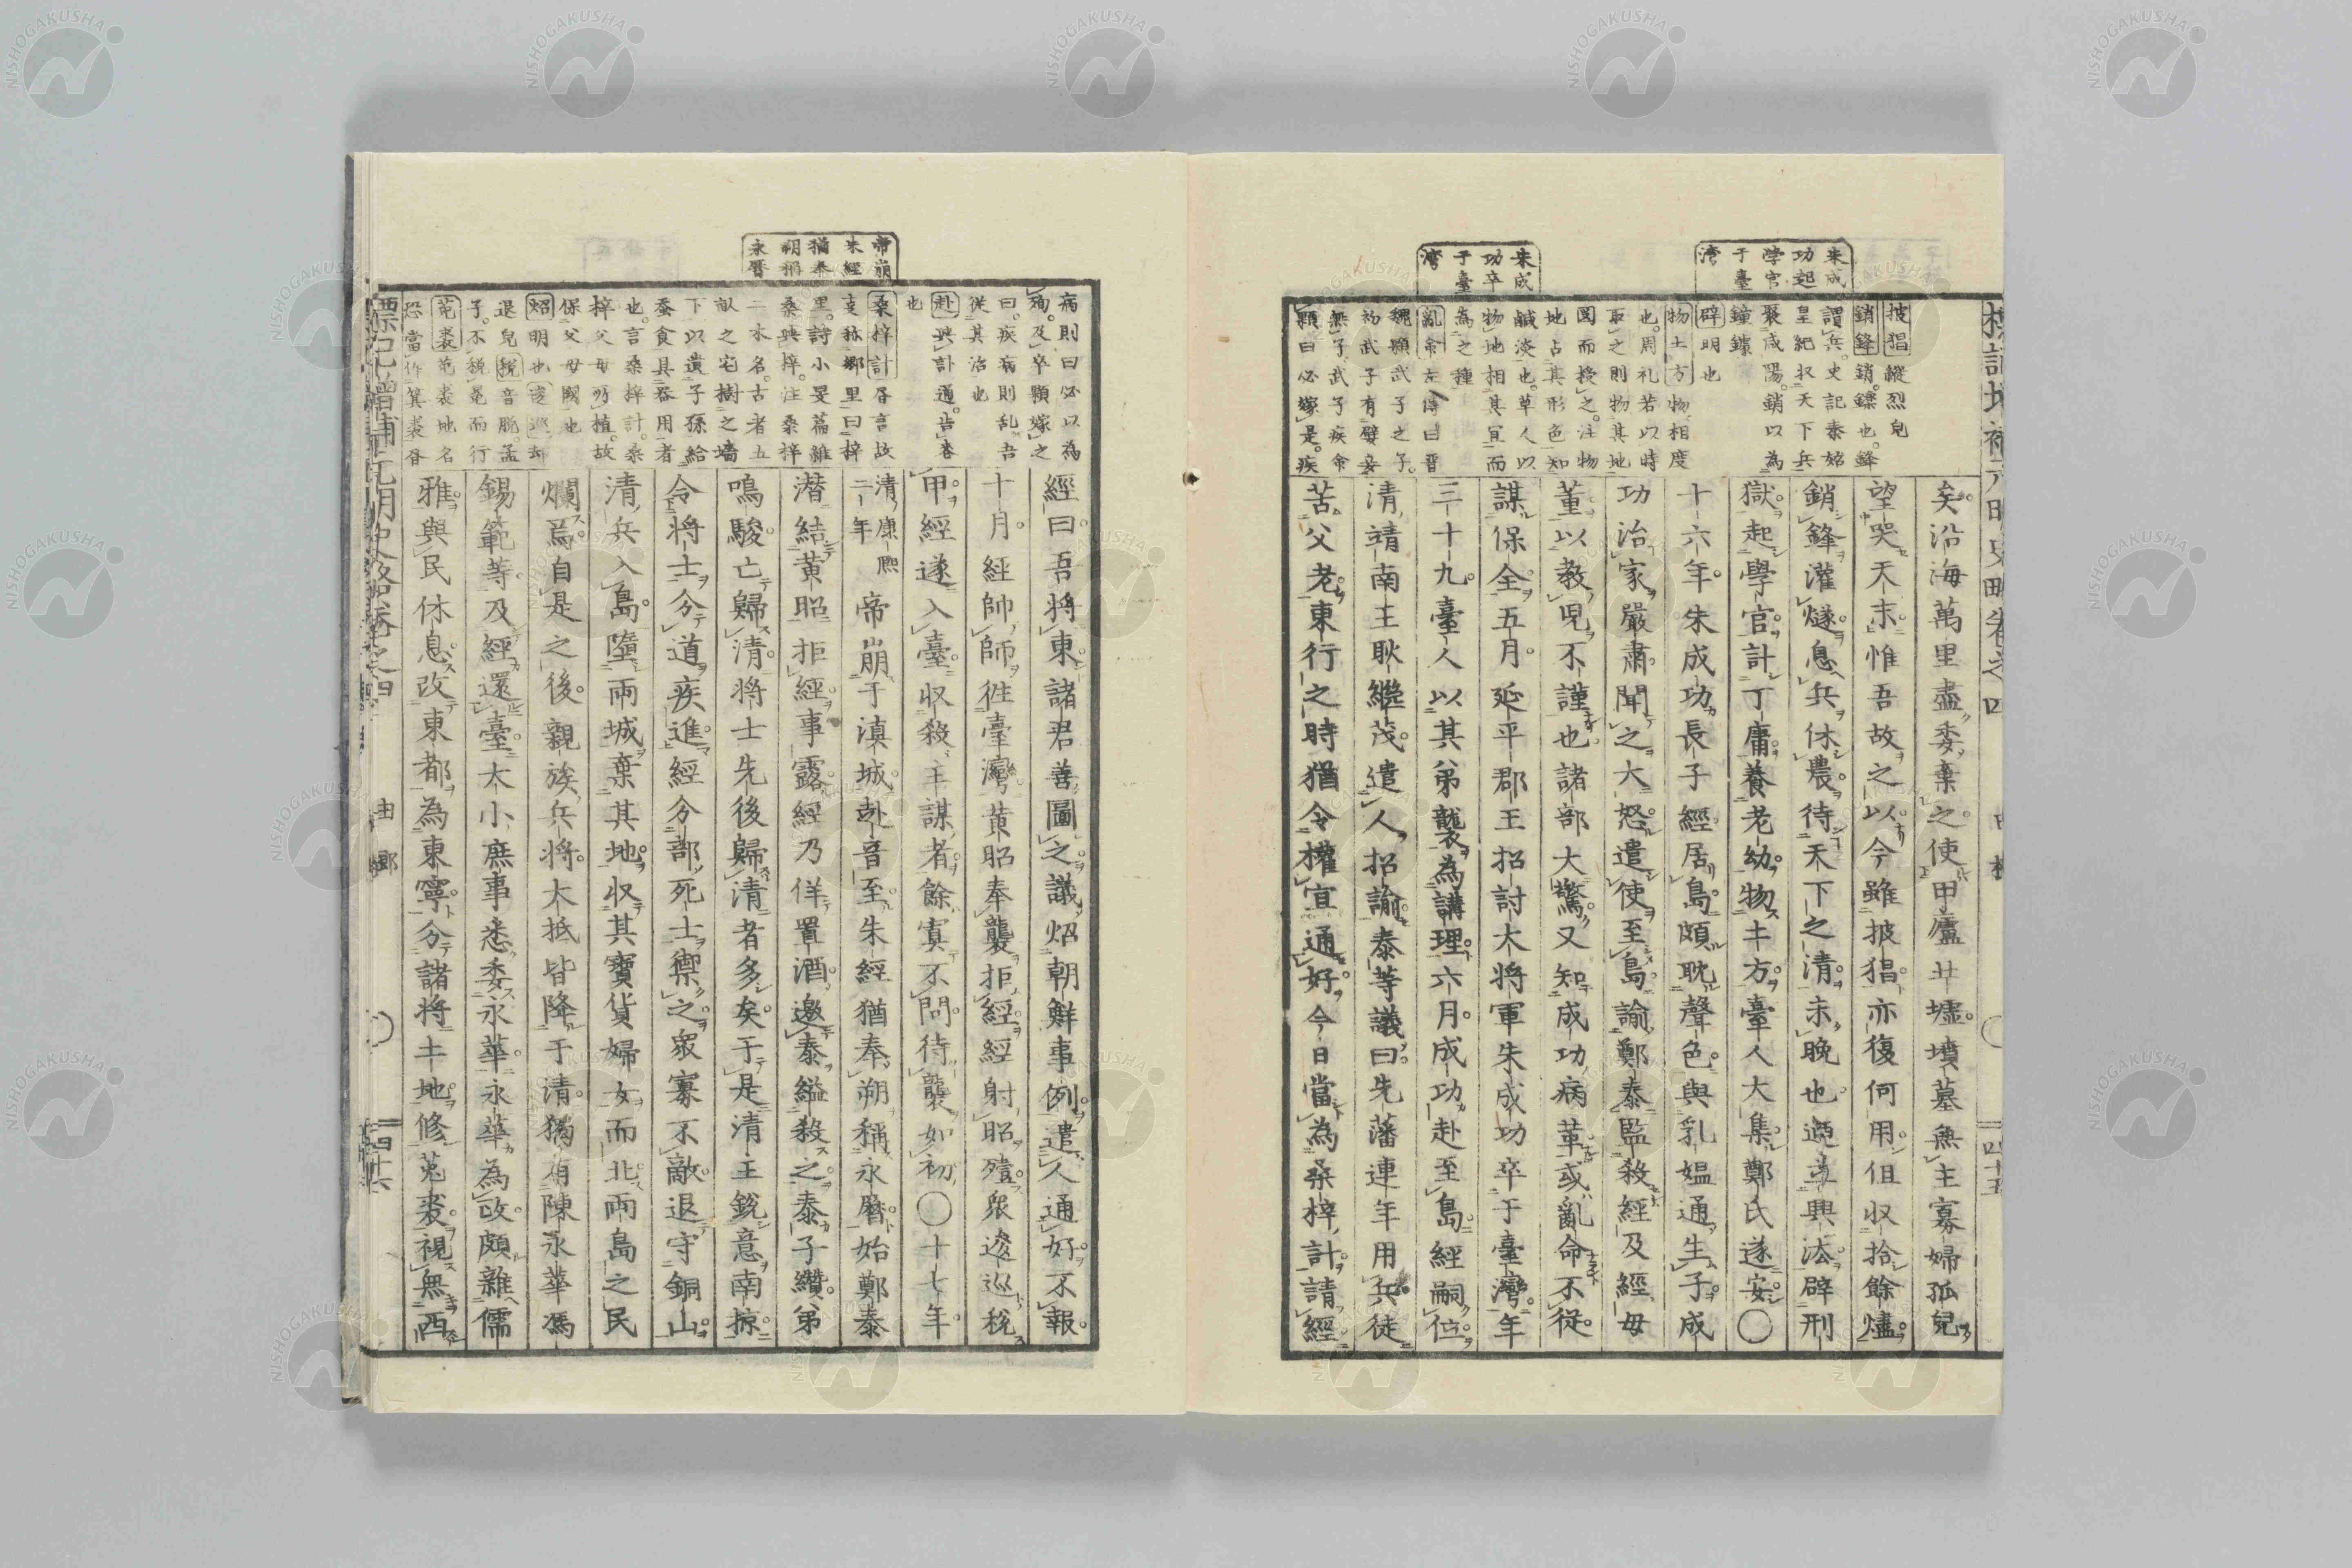 標記増補元明史略巻之四
四十五
朱成
功起
学官
于臺
湾
朱成
功卒
于臺
湾
披猖縱烈皃
銷鋒銷鑠也鋒
謂兵史記秦始
皇紀収天下兵
聚咸陽銷以為
鐘鐻
辟明也
物土方物相度
也周礼若以時
取之則物其地
図而授之注物
地占其形色知
鹹淡也草人以
物地相其宜而
為之種
亂命左傳曰晋
魏顆武子之子
初武子有嬖妾
無子武子疾命
顆曰必嫁是疾
矣沿海萬里盡委棄之使田廬丘墟墳墓無主寡婦孤兒
望哭天末惟吾故之以今雖披猖亦復何用但収拾餘燼
銷鋒灌燧息兵休農待天下之清未晩也廼立興法辟刑
獄起學官計丁庸養老幼物土方臺人大集鄭氏遂安〇
十六年朱成功長子經居島頗耽聲色與乳媼通生子成
功治家嚴肅聞之大怒遣使至島諭鄭泰監殺經及經母
董以教児不謹也諸部大驚又知成功病革或亂命不從
謀保全五月延平郡王招討大将軍朱成功卒于臺灣年
三十九臺人以其弟襲為講理六月成功赴至島經嗣位
清靖南王耿繼茂遣人招諭泰等議曰先藩連年用兵徒
苦父老東行之時猶令權宜通好今日當為桑梓計請經
帝崩
朱經
猶奉
朔稱
永暦
病則曰必以為
殉及卒顆嫁之
曰疾病則乱吾
従其治也
赴與訃通告喪
也
桑梓計昏言故
里詩小旻篇維
桑與梓注桑梓
二木名古者五
畝之宅樹之墻
下以遺子孫給
蚕食具器用者
也言桑梓計桑
梓父母所植故
保父母國也
炤明也逡巡却
退皃税音脱孟
子不税冕而行
菟裘菟裘地名
經曰吾将東諸君善圖之議炤朝鮮事例遣人通好不報
十月經帥師徃臺灣黄昭奉襲拒經經射昭殪衆逡巡税
甲經遂入臺収殺主謀者餘寘不問待襲如初〇十七年
清康熙
二年
帝崩于滇城赴音至朱經猶奉朔稱永暦始鄭泰
潜結黄昭拒經事露經乃佯置酒邀泰縊殺之泰子纘弟
鳴駿亡歸清将士先後歸清者多矣于是清主鋭意南掠
令将士分道疾進經分部死士禦之衆寡不敵退守銅山
清兵入島墮兩城棄其地収其寶貨婦女而北兩島之民
爛焉自是之後親族兵將大抵皆降于清獨有陳永華馮
錫範等及經還臺大小庶事悉委永華永華為政頗雜儒
雅與民休息改東都為東寧分諸将土地修菟裘視無西
標記増補元明史略巻之四
四十六